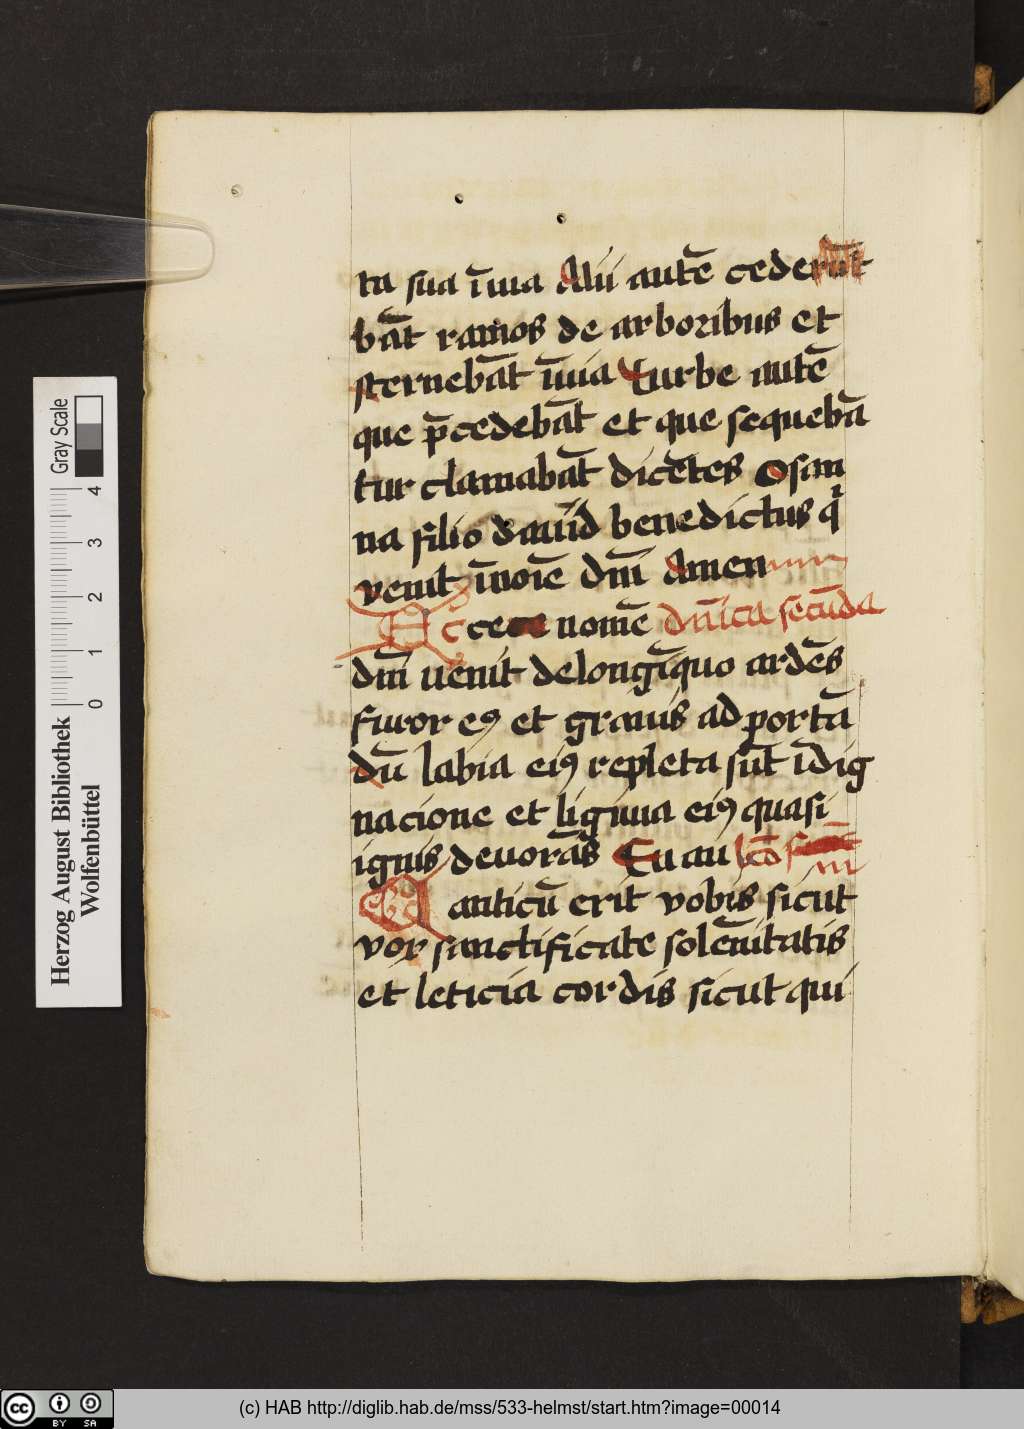 ta sua īuia Alii autē cederūt
bāt ramos de arboribus et
sternebāt īuia Turbe autē
que p̄cedebāt et que sequebā
tur clamabāt dicētes Osan
na filio dauid benedictus qͥ
venit īnoīe dnī Amen
Ecce nomē Dn̄ica secūda
dnī venit de longīquo ardēs
furor eꝯ et grauis ad portā
dū labia eiꝯ repleta sūt īdig
nacione et ligwa eiꝯ quasi
ignis deuorās Eu au
Canticū erit vobis sicut
vox sanctificate solēnitatis
et leticia cordis sicut qui
Gray Scale
4
3
2
1
0
Herzog August Bibliothek
Wolfenbüttel
cc BY SA
(c) HAB http://diglib.hab.de/mss/533-helmst/start.htm?image=00014